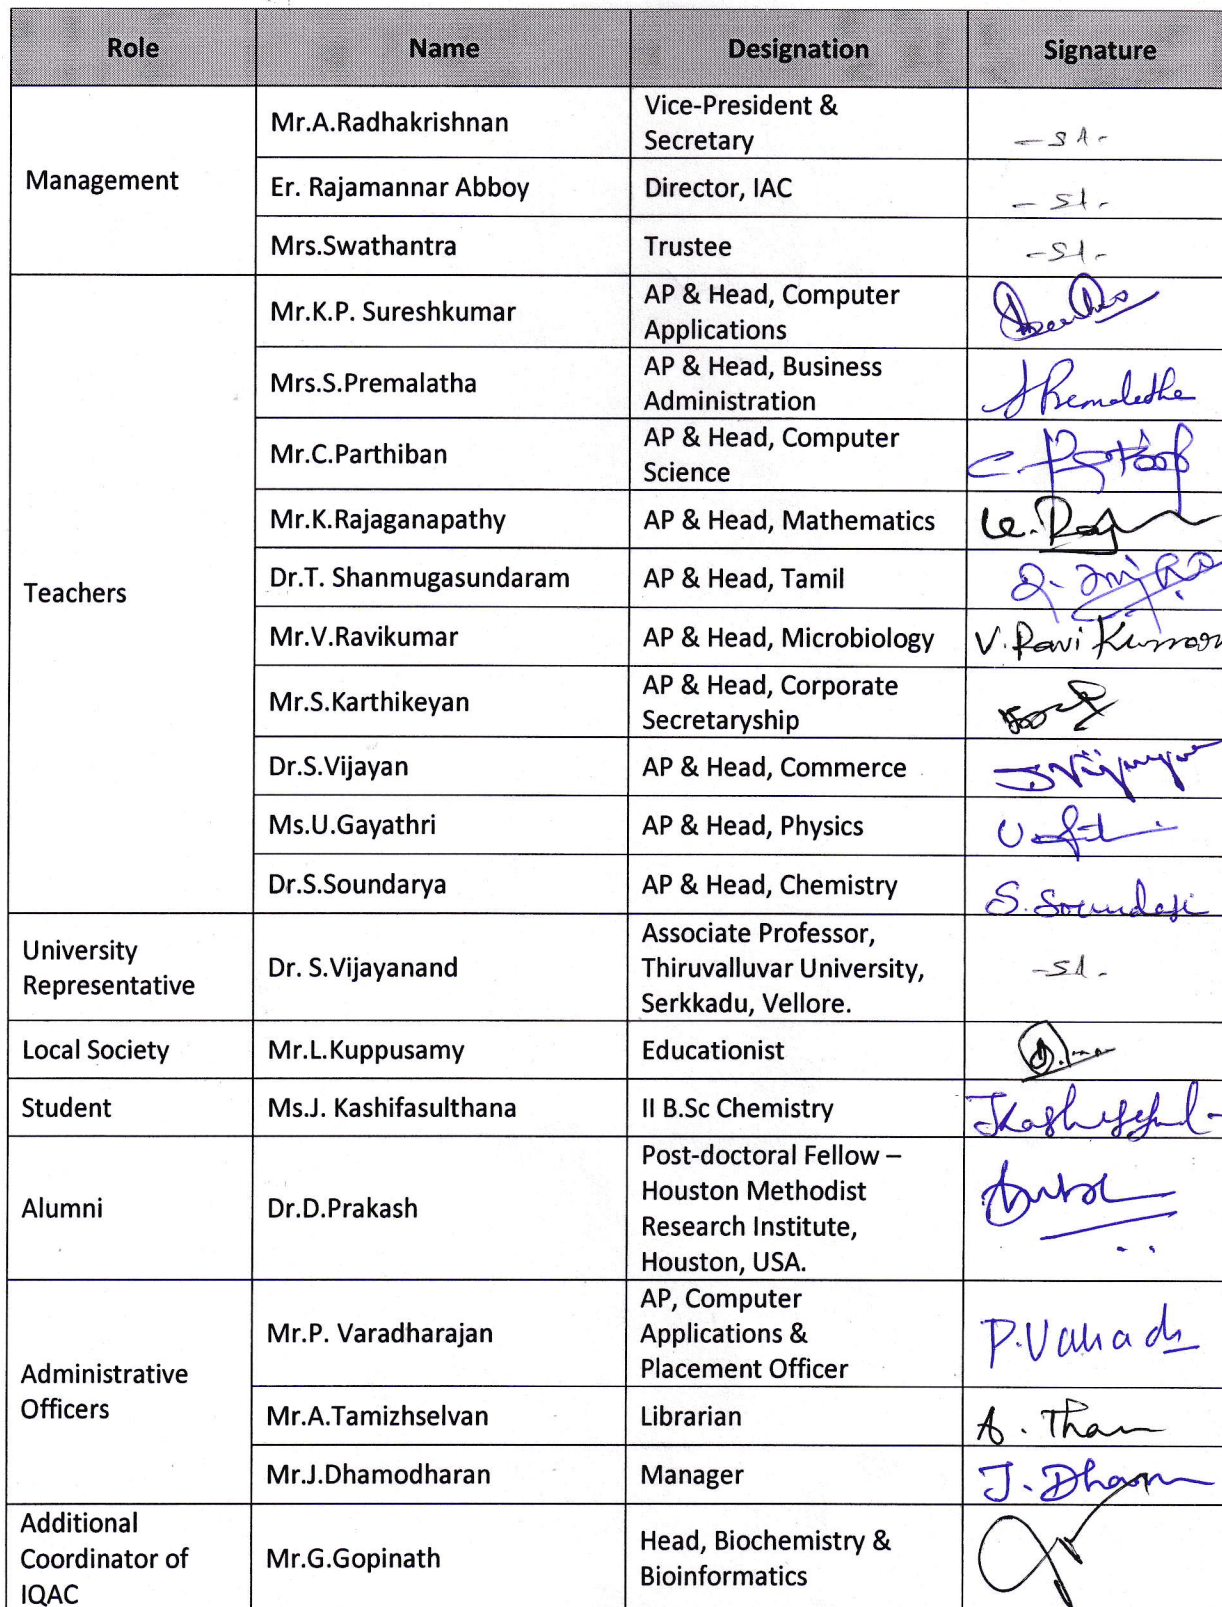 Role Name Designation Signature
Management
Mr.A.Radhakrishnan
Vice-President &
Secretary
Er. Rajamannar Abboy
Director, IAC
Mrs.Swathantra
Trustee
Teachers
Mr.K.P. Sureshkumar
AP & Head, Computer
Applications
Mrs.S.Premalatha
AP & Head, Business
Administration
Mr.C.Parthiban
AP & Head, Computer
Science
Mr.K.Rajaganapathy
AP & Head, Mathematics
Dr.T. Shanmugasundaram
AP & Head, Tamil
Mr.V.Ravikumar
AP & Head, Microbiology
V. Ravi Kumar
Mr.S.Karthikeyan
AP & Head, Corporate
Secretaryship
Dr.S.Vijayan
AP & Head, Commerce
Ms.U.Gayathri
AP & Head, Physics
Dr.S.Soundarya
AP & Head, Chemistry
University
Representative
Dr. S.Vijayanand
Associate Professor,
Thiruvalluvar University,
Serkkadu, Vellore.
Local Society
Mr.L.Kuppusamy
Educationist
Student
Ms.J. Kashifasulthana
II B.Sc Chemistry
Alumni
Dr.D.Prakash
Post-doctoral Fellow –
Houston Methodist
Research Institute,
Houston, USA.
Administrative
Officers
Mr.P. Varadharajan
AP, Computer
Applications &
Placement Officer
Mr.A.Tamizhselvan
Librarian
Mr.J.Dhamodharan
Manager
Additional
Coordinator of
IQAC
Mr.G.Gopinath
Head, Biochemistry &
Bioinformatics